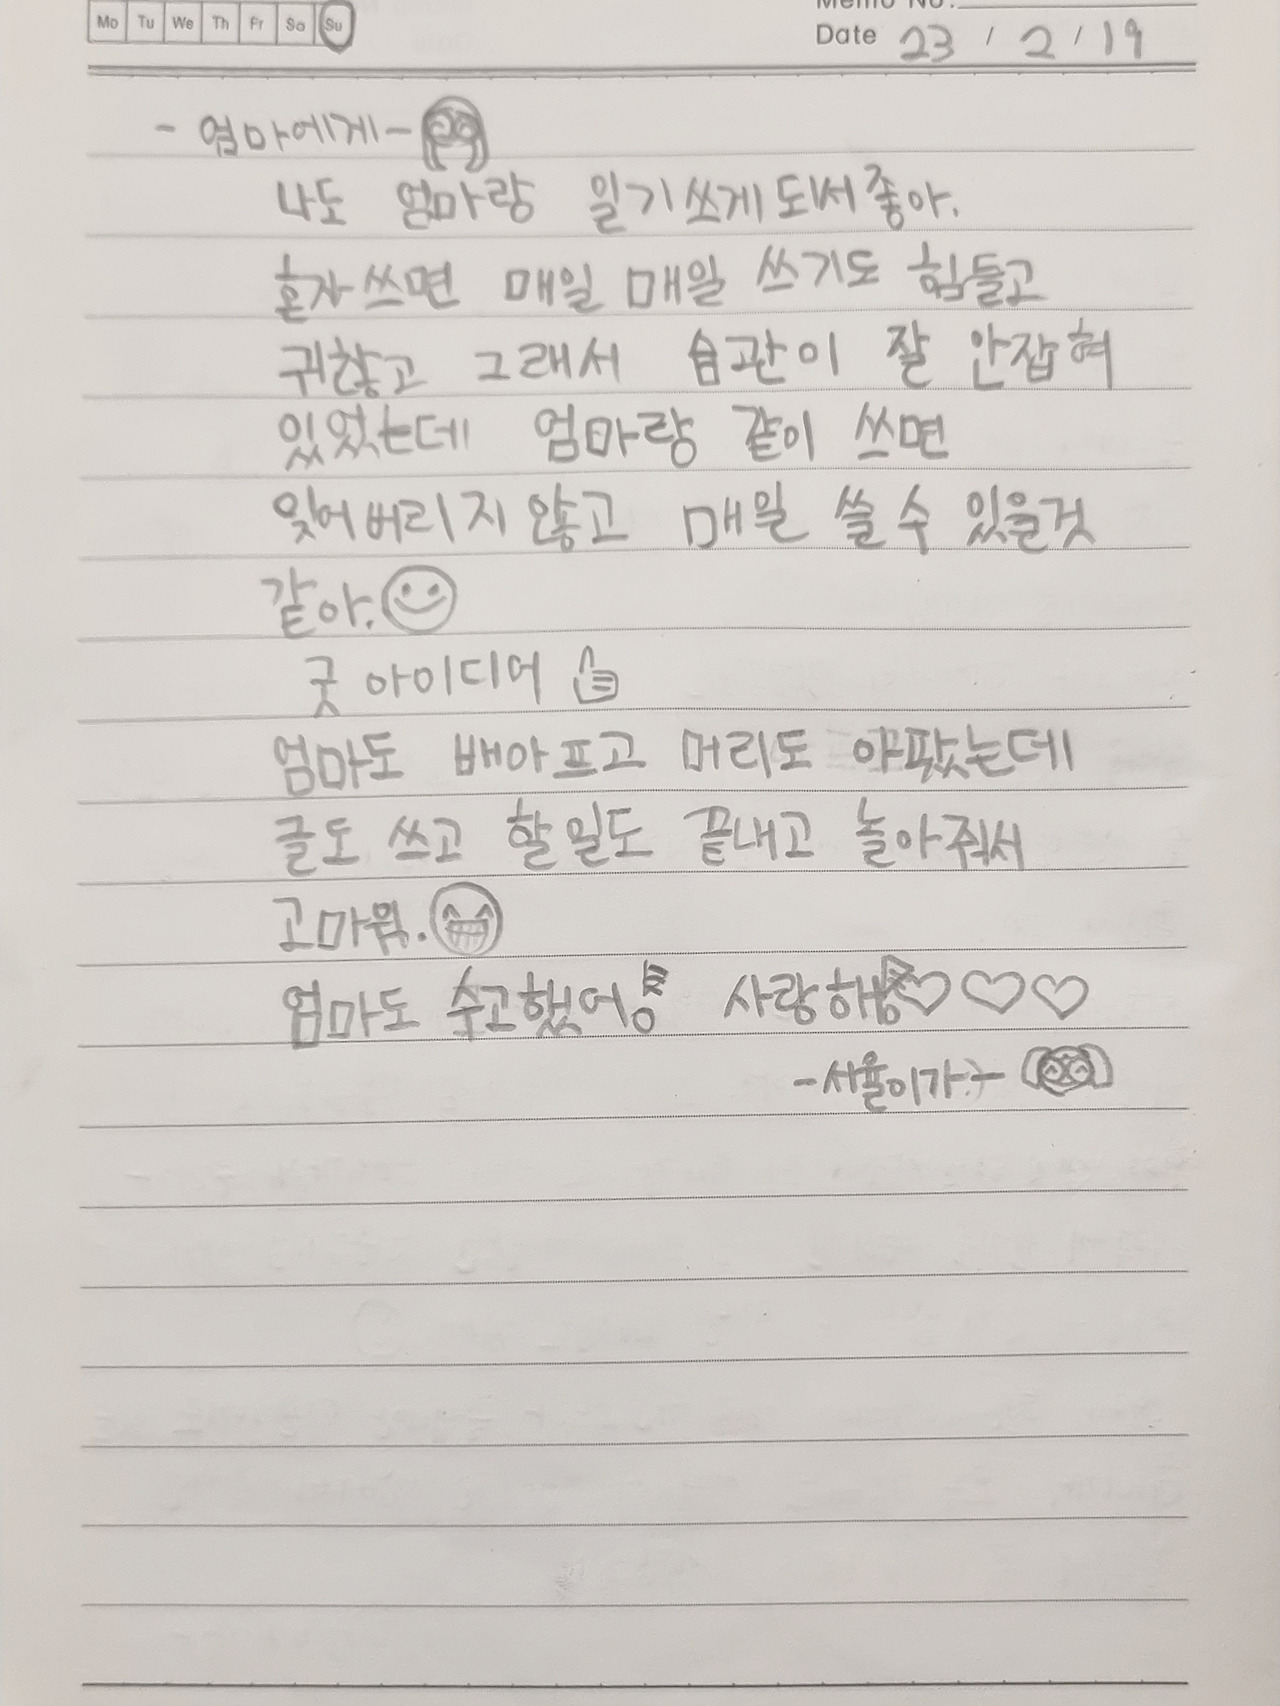 Mo Tu We Th Fr Sa Su
Memo No.
Date 23 / 2 / 19
- 엄마에게 -
나도 엄마랑 일기쓰게 되서 좋아.
혼자 쓰면 매일 매일 쓰기도 힘들고
귀찮고 그래서 습관이 잘 안잡혀
있었는데 엄마랑 같이 쓰면
잊어버리지 않고 매일 쓸 수 있을것
같아.
굿 아이디어
엄마도 배아프고 머리도 아팠는데
글도 쓰고 할일도 끝내고 놀아줘서
고마워.
엄마도 수고했어 사랑해
- 서율이가 -